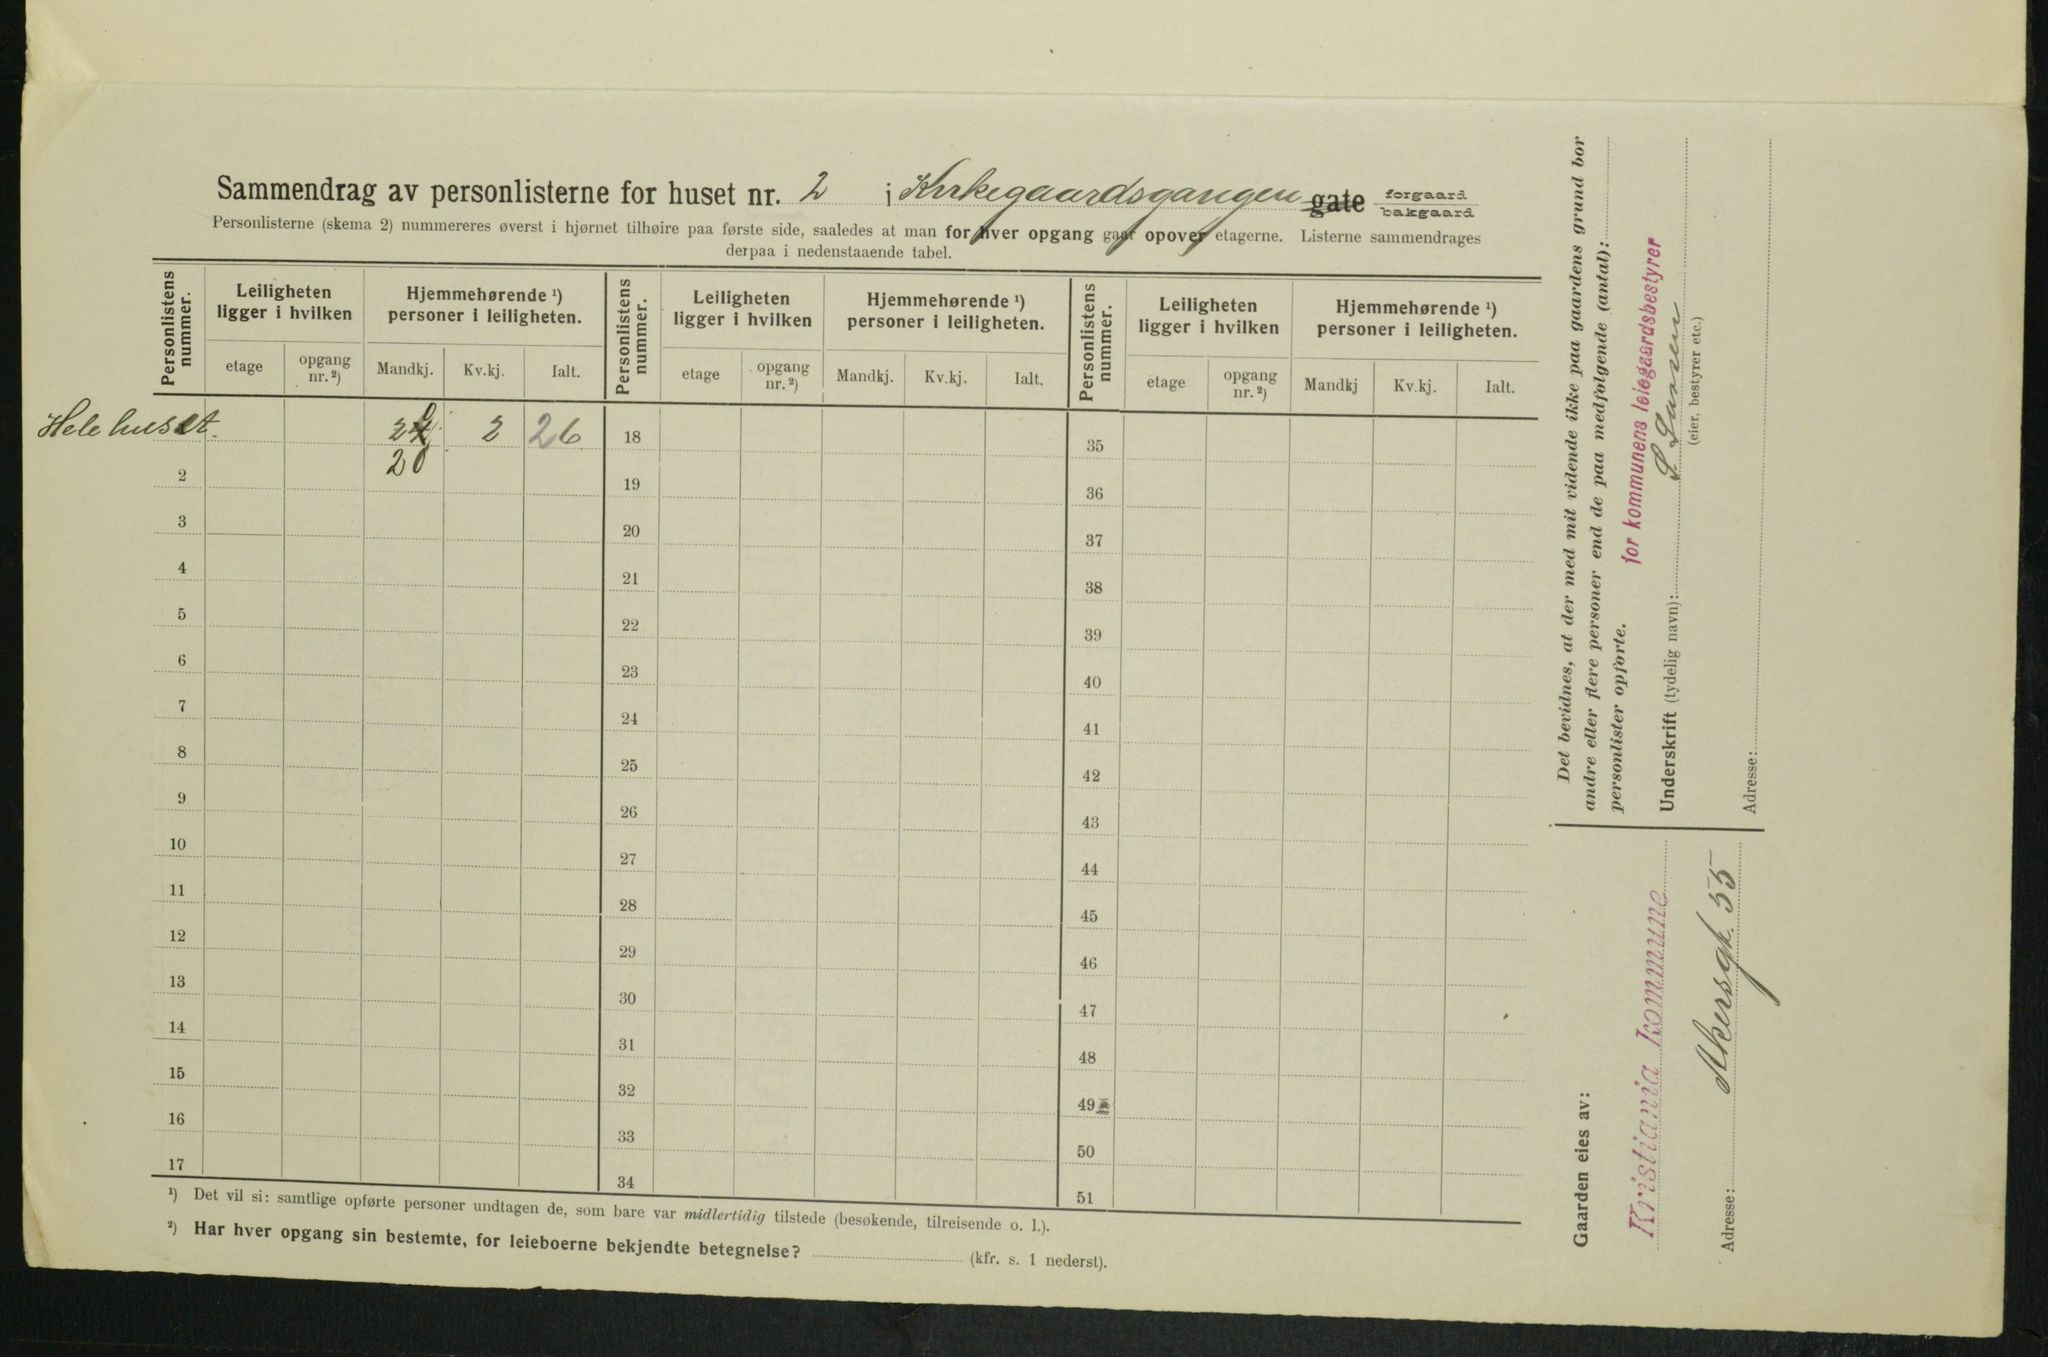 Sammendrag av personlisterne for huset nr. 2 i Kirkegaardsgangen gate forgaard bakgaard
Personlisterne (skema 2) nummereres øverst i hjørnet tilhøire paa første side, saaledes at man for hver opgang gaar opover etagerne. Listerne sammendrages
derpaa i nedenstaaende tabel.
Personlistens nummer. Leiligheten ligger i hvilken Hjemmehørende ¹) personer i leiligheten. Personlistens nummer. Leiligheten ligger i hvilken Hjemmehørende ¹) personer i leiligheten. Personlistens nummer. Leiligheten ligger i hvilken Hjemmehørende ¹) personer i leiligheten.
etage opgang nr. ²) Mandkj. Kv.kj. Ialt. etage opgang nr. ²) Mandkj. Kv.kj. Ialt. etage opgang nr. ²) Mandkj Kv.kj. Ialt.
Hele huset. 2 26 18 35
2 20 19 36
3 20 37
4 21 38
5 22 39
6 23 40
7 24 41
8 25 42
9 26 43
10 27 44
11 28 45
12 29 46
13 30 47
14 31 48
15 32 49
16 33 50
17 34 51
¹) Det vil si: samtlige opførte personer undtagen de, som bare var midlertidig tilstede (besøkende, tilreisende o. l.).
²) Har hver opgang sin bestemte, for leieboerne bekjendte betegnelse? (kfr. s. 1 nederst).
Det bevidnes, at der med mit vidende ikke paa gaardens grund bor
andre eller flere personer end de paa medfølgende (antal):
personlister opførte.
for kommunens leiegaardsbestyrer
Underskrift (tydelig navn):
(eier, bestyrer etc.)
Adresse:
Gaarden eies av:
Kristiania kommune
Adresse: Akersgt. 55